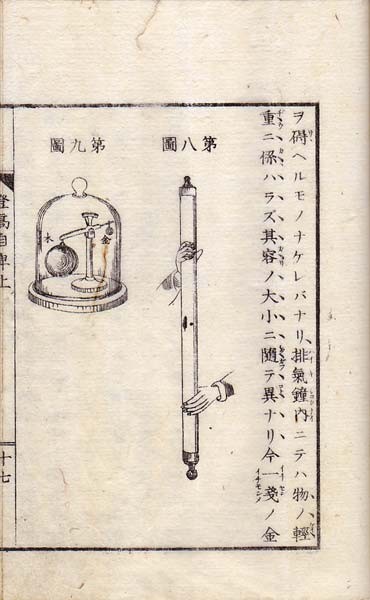 ヲ碍ヘルモノナケレバナリ、排氣鐘内ニテハ物ノ輕
重ニ係ハラズ、其容ノ大小ニ隨テ異ナリ今一錢ノ金
第八圖
第九圖
金
木
登高自卑上
十七